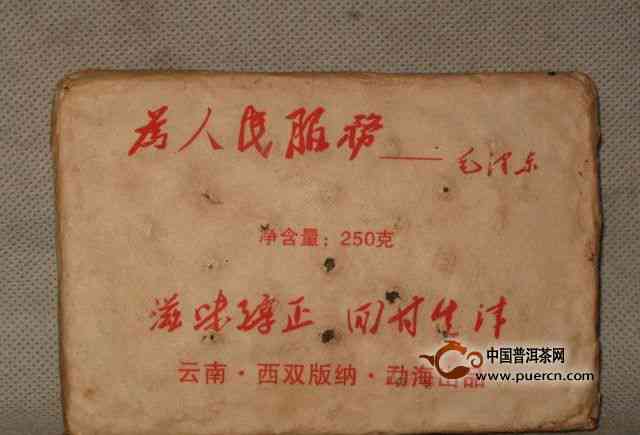 为人民服務——毛泽东
净含量：250克
滋味醇正 回甘生津
云南·西双版纳·勐海出品
中国普洱茶网
www.puercn.com